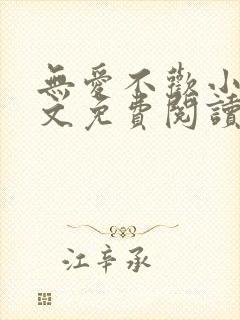 無愛不歡小
文免費閱讀
江辛承